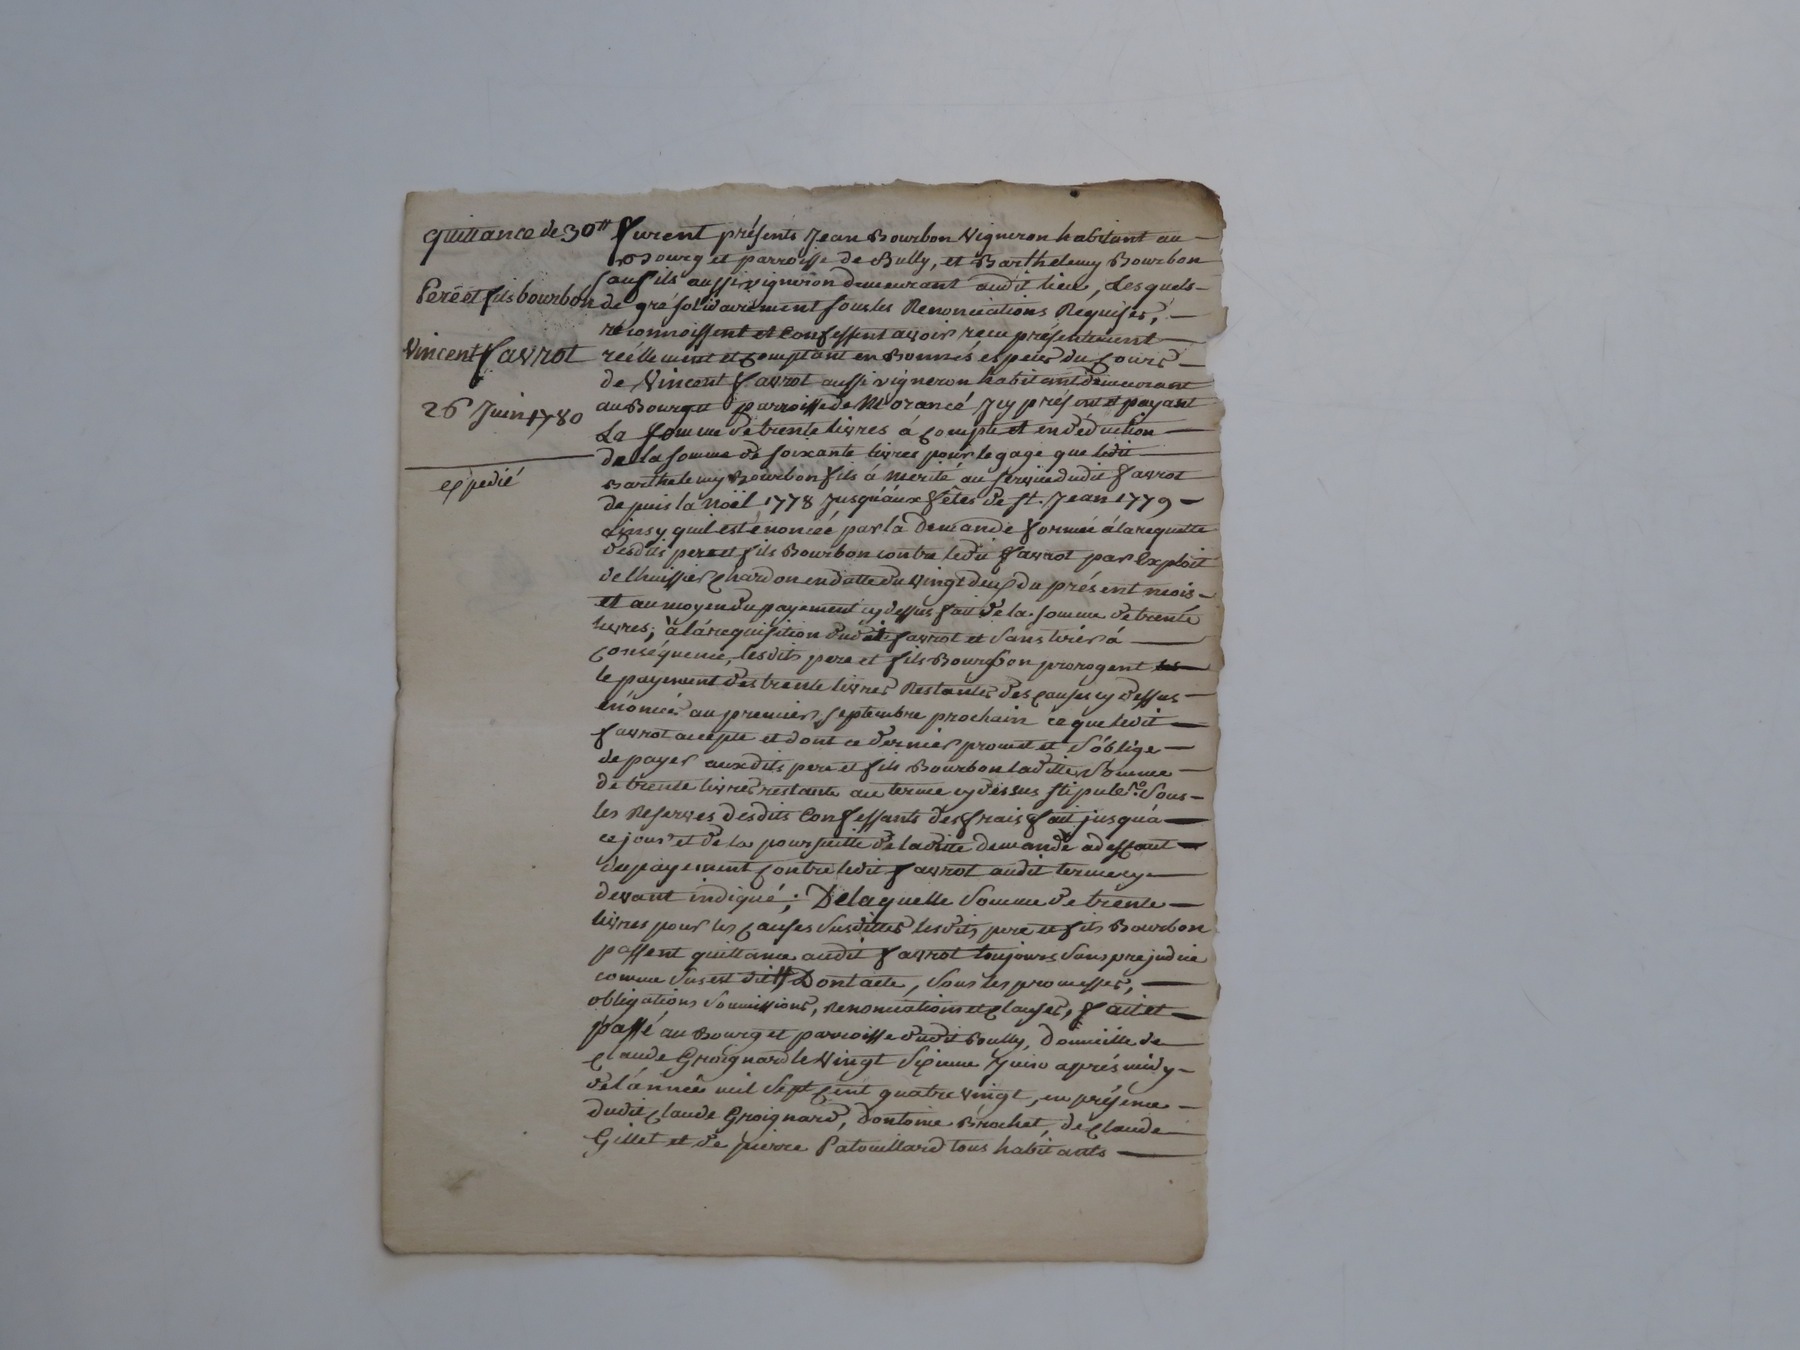 quittance de 30ᵗᵗ
Pere et fils bourbon
Vincent favrot
26 Juin 1780
expedié
Furent présents Jean Bourbon Vigneron habitant au
Bourg et parroisse de Bully, et Barthelemy Bourbon
son fils aussi vigneron demeurant audit lieu, Lesquels
de gré solidairement sous les Renonciations Requises,
réconnoissent et Confessent avoir reçu présentement
réellement et comptant en Bonnes espéces du Cours
de Vincent favrot aussi vigneron habitant demeurant
au Bourg et parroisse de Morancé Icy présent et payant
La somme de trente livres á compte et en déduction
de la somme de soixante livres pour le gage que ledit
Barthelemy Bourbon fils á mérité au service dudit favrot
depuis la Noël 1778 Jusqu'aux fêtes de St. Jean 1779
Ainsy quil est énoncée par la demande formée á la requette
desdits pere et fils Bourbon contre ledit favrot par Exploit
de l'huissier Chardon en datte du vingt deux du présent mois
et au moyen du payement cy dessus fait de la somme de trente
livres; à la requisition dudit favrot et sans tirer á
conséquence, lesdits pere et fils Bourbon prorogent
le payement des trente livres Restantes des causes cy dessus
énoncés au premier septembre prochain ce que ledit
favrot accepte et dont ce dernier promet et s'oblige
de payer auxdits pere et fils Bourbon ladite Somme
de trente livres restante au terme cy dessus stipulé. Sous
les Reserves desdits Confessants des frais fait jusquá
ce jour et de la poursuitte de ladite demande a deffaut
du payement contre ledit favrot audit terme cy
devant indiqué; De laquelle Somme de trente
livres pour les causes susdittes lesdits pere et fils Bourbon
passent quittance audit favrot toujours sans prejudice
comme sus est dit // Dont acte, sous les promesses,
obligations soumissions, renonciations et clauses, fait et
passé au Bourg et parroisse dudit Bully, Domicille de
Claude Groignard le vingt Sixieme Juin aprés midy
de l'année mil Sept Cent quatre vingt, en présence
dudit Claude Groignard, d'antoine Brochet, de Claude
Gillet et de pierre Patouillard tous habitants